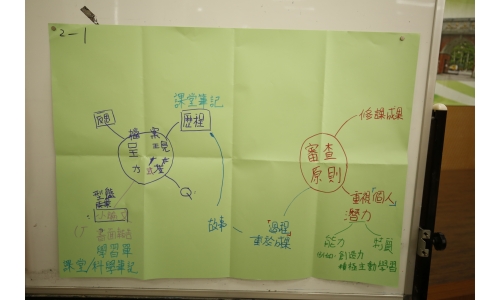 2-1
課堂筆記
歷程
檔案
呈現
方式
Q
型態
書面報告
學習單
課堂/科學筆記
故事
「過程」
重於成果
審查
原則
修課成果
重視「個人」
潛力
能力
特質
例如:創造力
積極主動學習